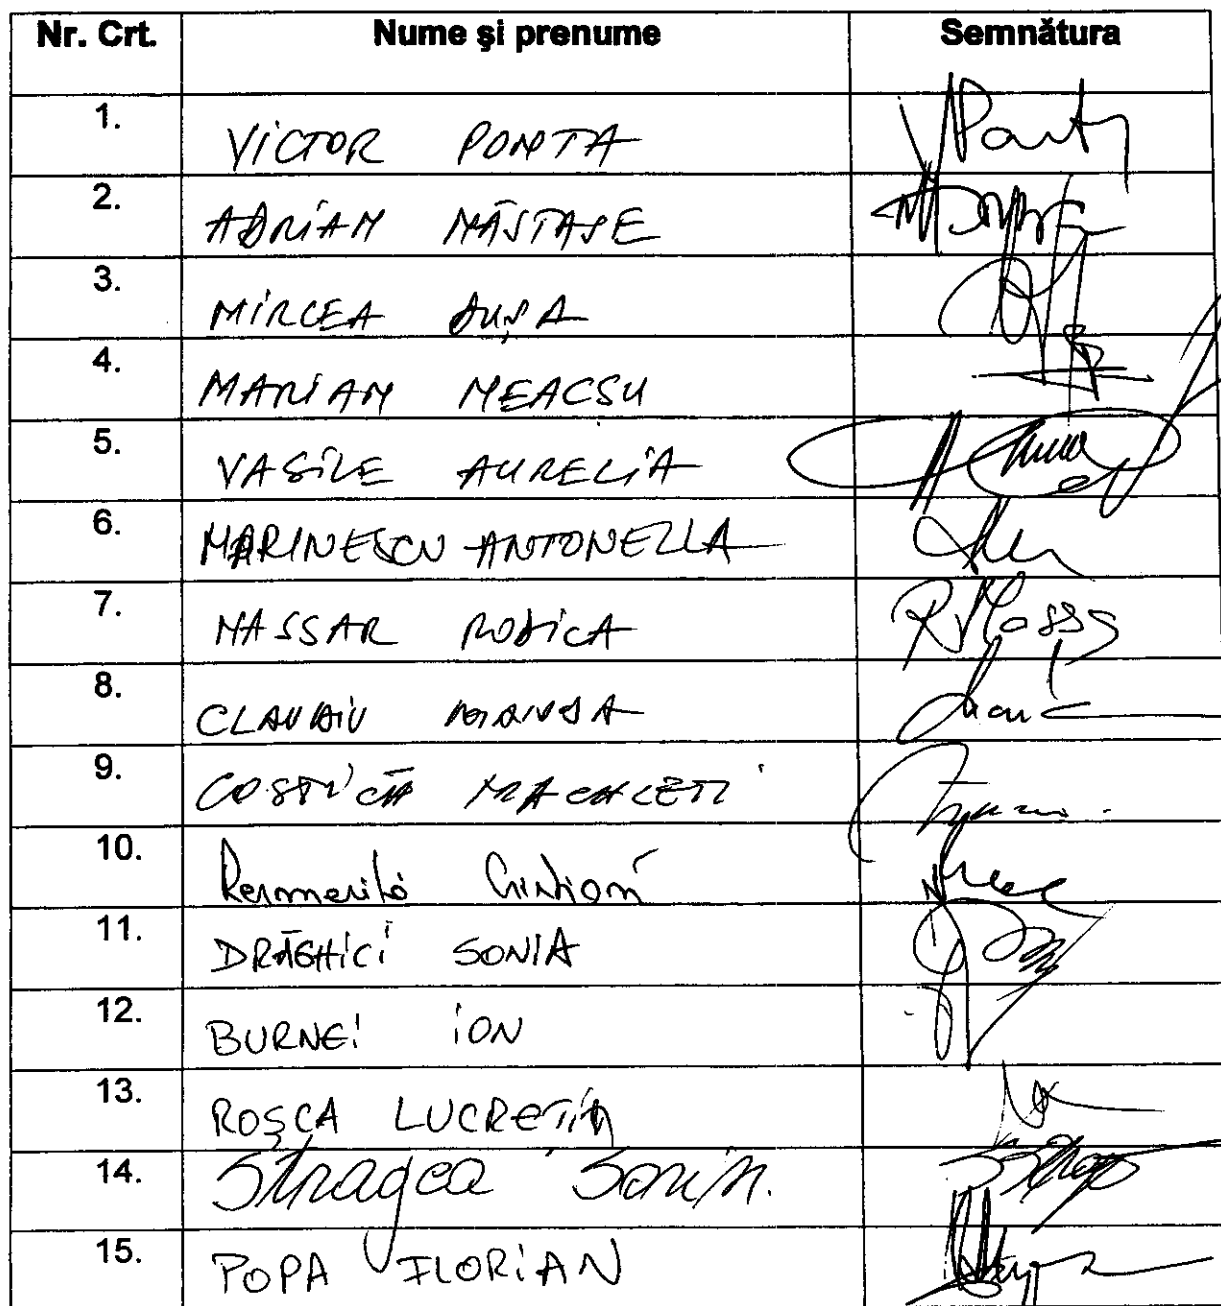 Nr. Crt. Nume şi prenume Semnătura
1. VICTOR PONTA
2. ADRIAN NĂSTASE
3. MIRCEA DUŞA
4. MARIAN NEACSU
5. VASILE AURELIA
6. MARINESCU ANTONELLA
7. NASSAR RODICA
8. CLAUDIU MANDA
9. COSTICĂ MACALETI
10.
11. DRĂGHICI SONIA
12. BURNEI ION
13. ROŞCA LUCREȚIA
14. Stragea Sorin.
15. POPA FLORIAN